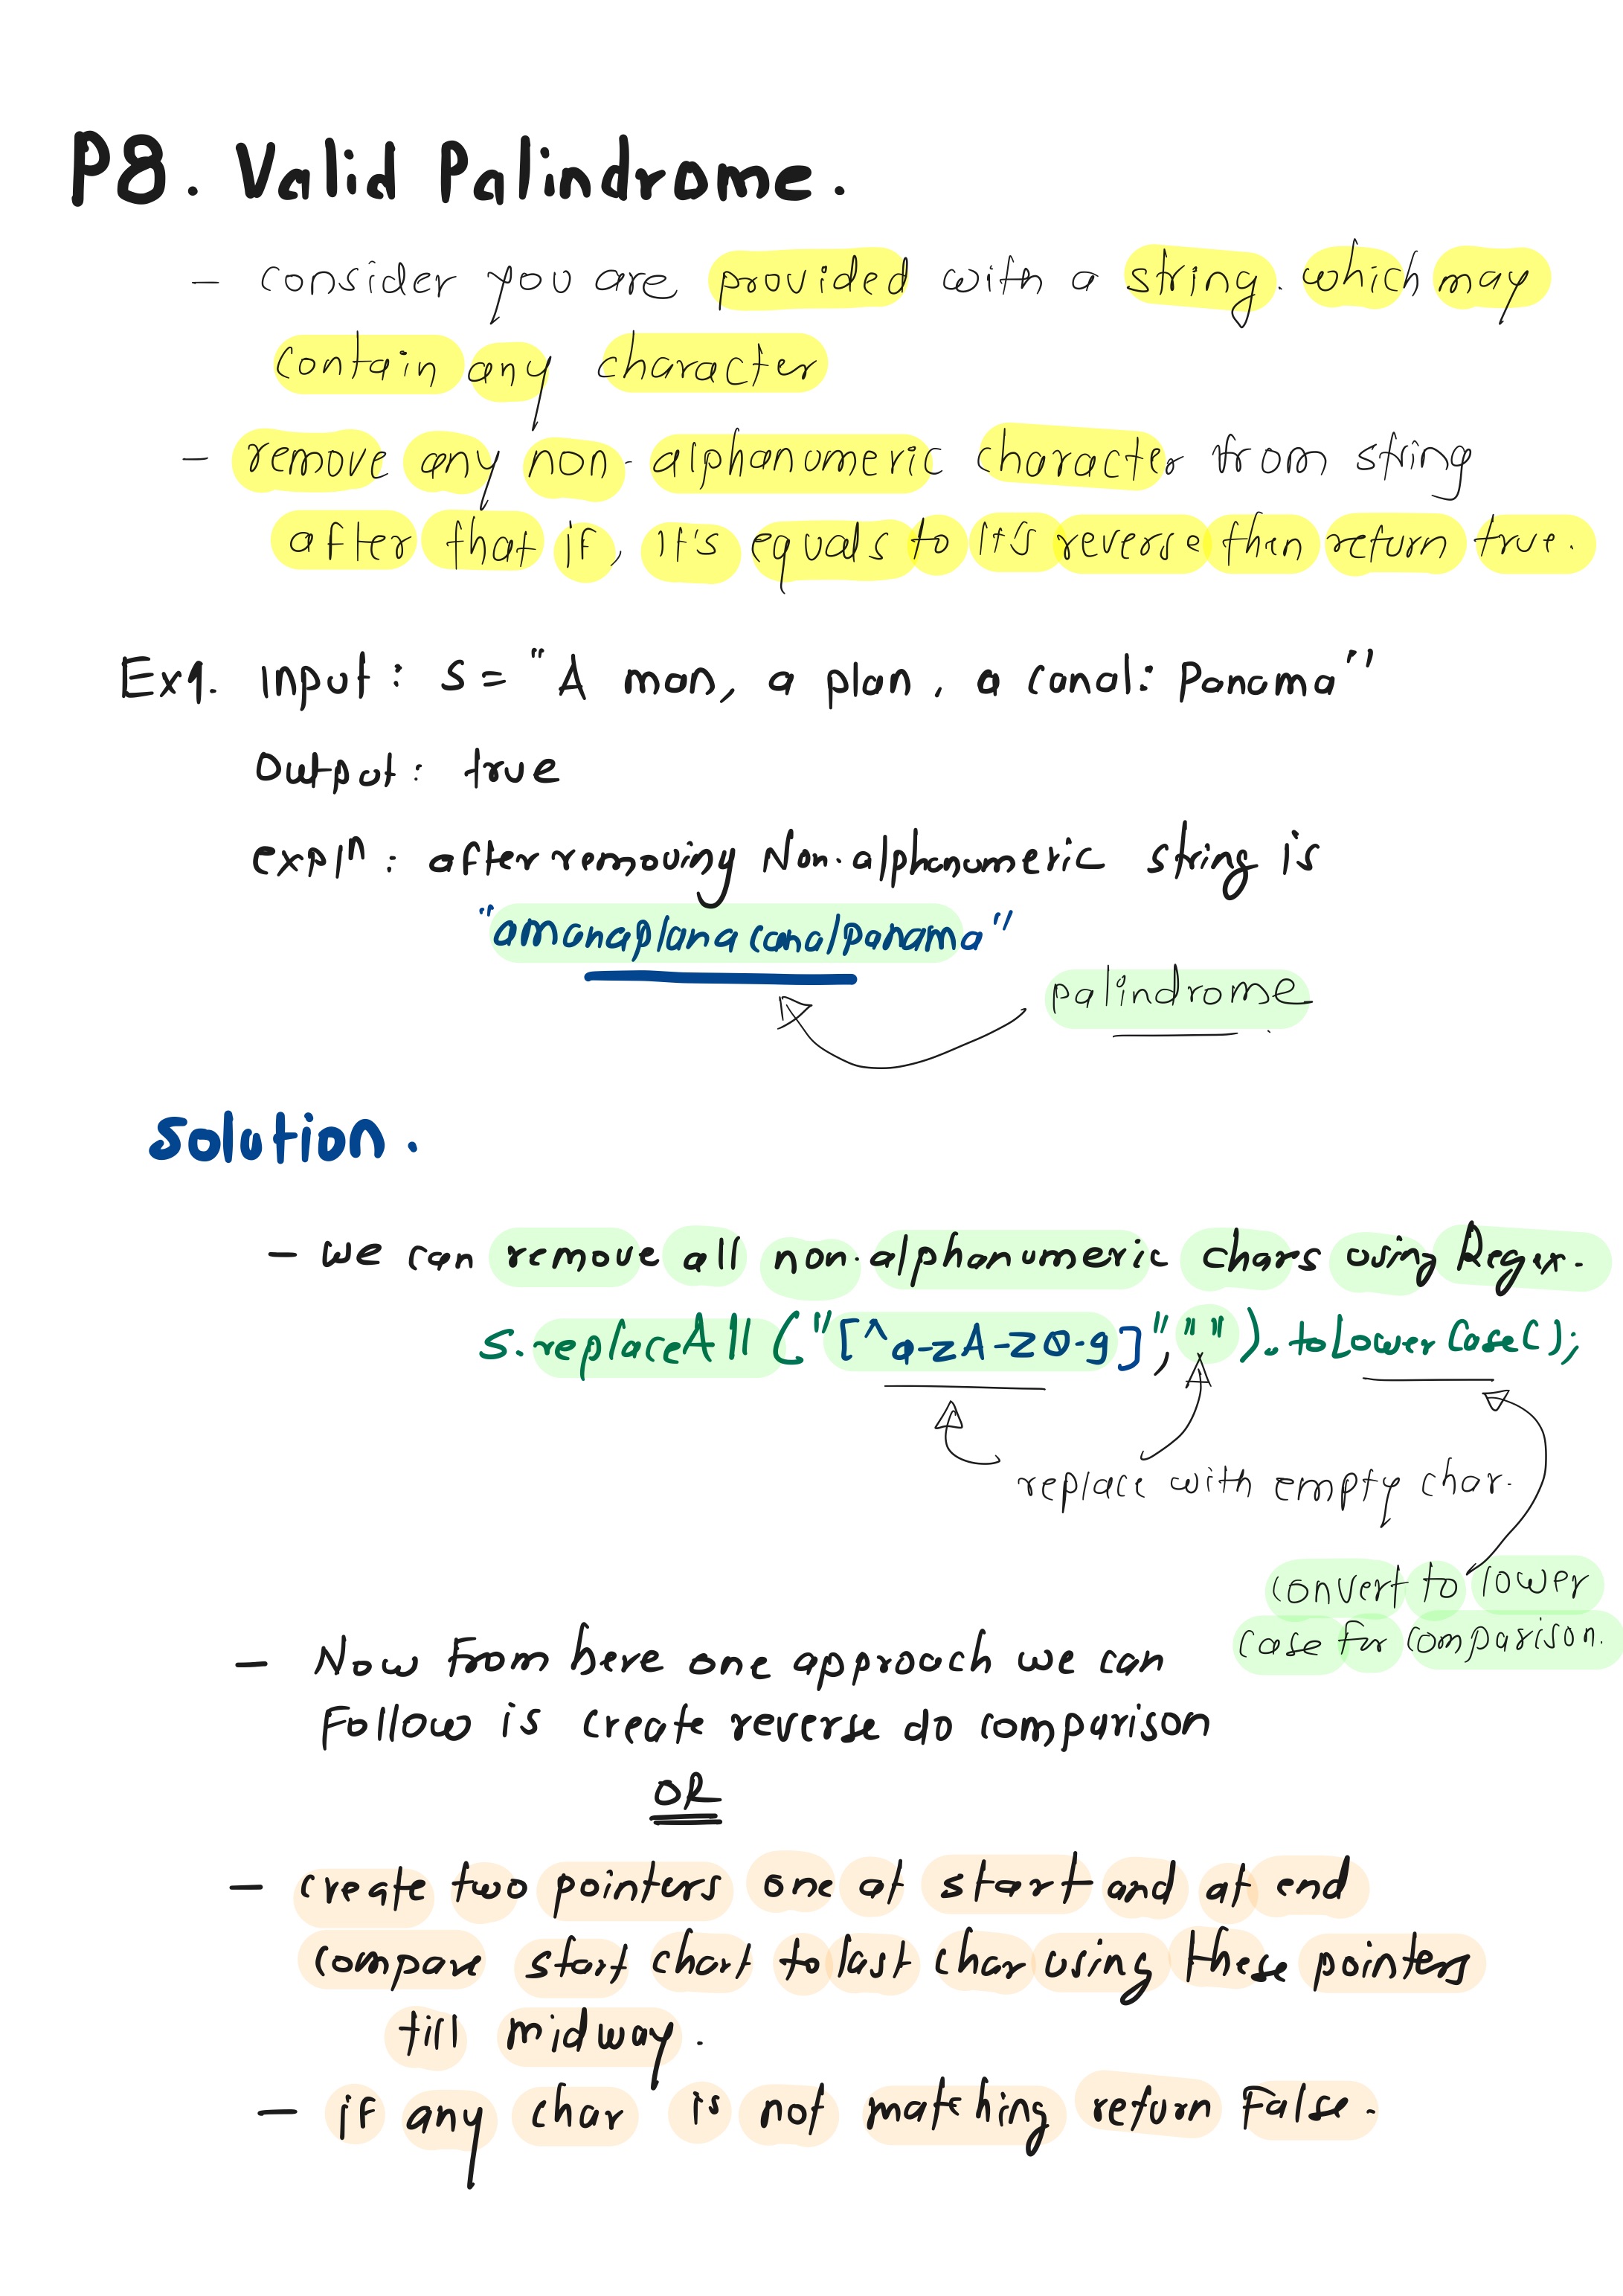 P8. Valid Palindrome.
- consider you are provided with a string. which may
contain any character
- remove any non-alphanumeric character from string
after that if, it's equals to it's reverse then return true.
Ex1. Input: s = "A man, a plan, a canal: Panama"
Output: true
expln: after removing Non-alphanumeric string is
"amanaplanacanalpanama"
palindrome
Solution.
- we can remove all non-alphanumeric chars using Regex.
s.replaceAll("[^a-zA-Z0-9]", "").toLowerCase();
replace with empty char.
convert to lower
case for comparison.
- Now from here one approach we can
Follow is create reverse do comparison
OR
- create two pointers one at start and at end
compare start chart to last char using these pointers
till midway.
- if any char is not matching return False.